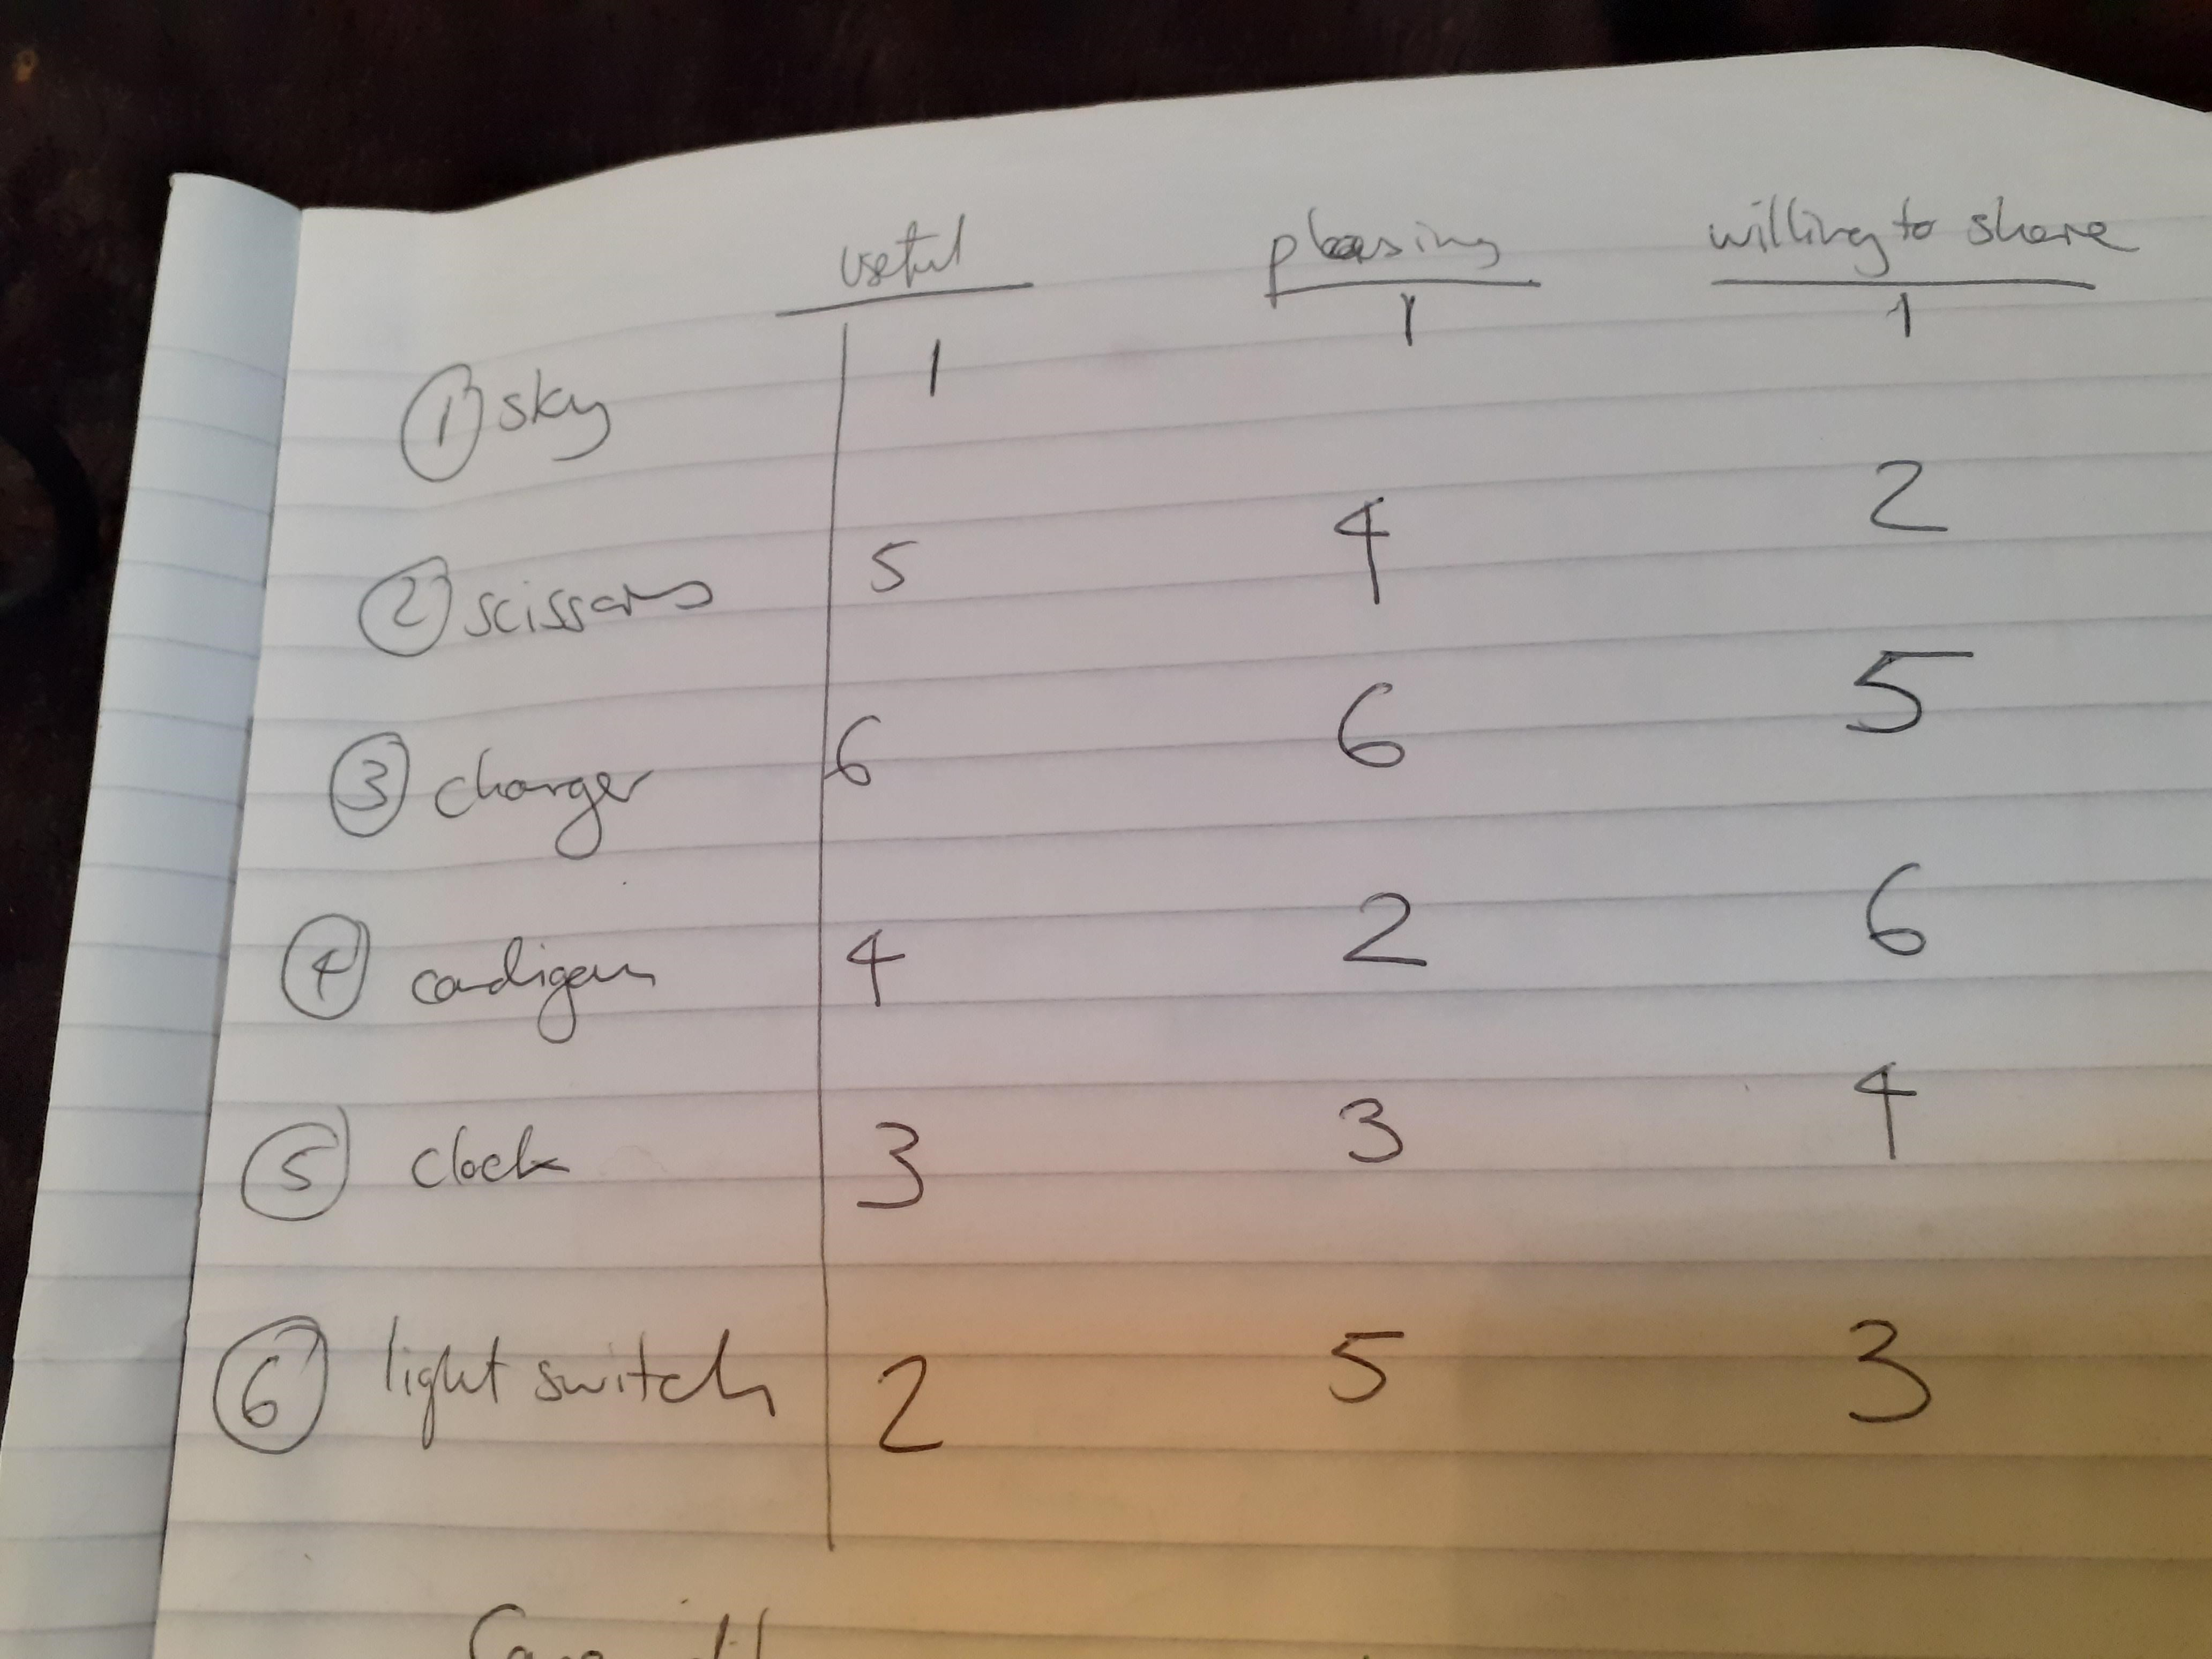 useful pleasing willing to share
1 sky 1 1 1
2 scissors 5 4 2
3 charger 6 6 5
4 cardigan 4 2 6
5 clock 3 3 4
6 light switch 2 5 3